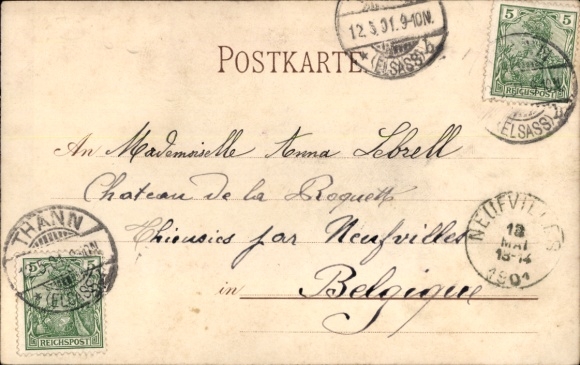 12.5.01.9-10N.
* (ELSASS) b
POSTKARTE
5 5
REICHSPOST
(ELSASS)
An Mademoiselle Anna Lebrell
Chateau de la Roquette
Thieusies par Neufvilles
in Belgique
NEUFVILLES
13
MAI
13-14
1901
THANN
* (ELSASS)
5
REICHSPOST